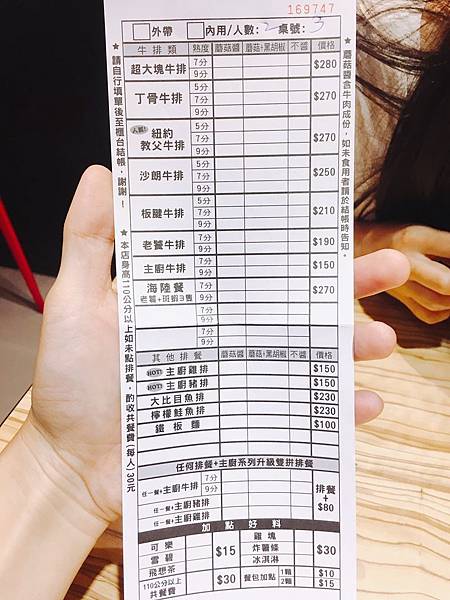 169747
外帶 內用/人數: 2 桌號: 3
牛排類 熟度 蘑菇醬 蘑菇+黑胡椒 不醬 價格
超大塊牛排 7分 9分 $280
丁骨牛排 5分 7分 9分 $270
人氣! 紐約教父牛排 5分 7分 9分 $270
沙朗牛排 5分 7分 9分 $250
板腱牛排 5分 7分 9分 $210
老饕牛排 7分 9分 $190
主廚牛排 7分 9分 $150
海陸餐 7分 9分 $270
老饕+斑蝦3隻
7分
9分
7分
9分
其他排餐 蘑菇醬 蘑菇+黑胡椒 不醬 價格
HOT! 主廚雞排 $150
HOT! 主廚豬排 $150
大比目魚排 $230
檸檬鮭魚排 $230
鐵板麵 $100
任何排餐+主廚系列升級雙拼排餐
任一餐+主廚牛排 7分 9分 排餐+$80
任一餐+主廚豬排
任一餐+主廚雞排
加點好料
可樂 $15 雞塊 $30
雪碧 炸薯條
飛想茶 冰淇淋
110公分以上共餐費 $30 餐包加點 1顆 $10
2顆 $15
★請自行填單後至櫃台結帳,謝謝!
★本店身高110公分以上如未點排餐,酌收共餐費(每人)30元
★蘑菇醬含牛肉成份,如未食用者請於結帳時告知。